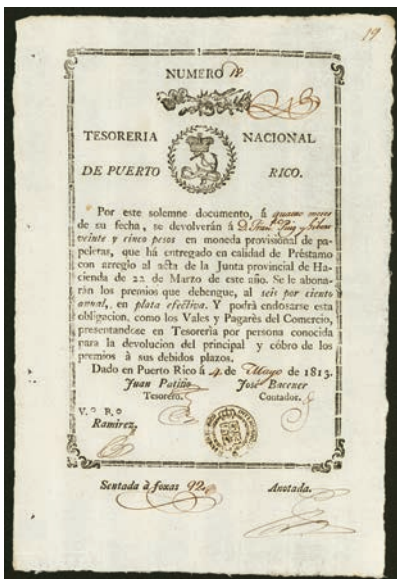 19
NUMERO 18.
TESORERIA NACIONAL
DE PUERTO RICO.
Por este solemne documento, á quatro meses
de su fecha, se devolverán á D. Fran.co Puig y
veinte y cinco pesos en moneda provisional de pa-
peletas, que há entregado en calidad de Préstamo
con arreglo al acta de la Junta provincial de Ha-
cienda de 22 de Marzo de este año. Se le abona-
rán los premios que debengue, al seis por ciento
anual, en plata efectiva. Y podrá endosarse esta
obligacion, como los Vales y Pagarès del Comercio,
presentandose en Tesorería por persona conocida
para la devolucion del principal y cóbro de los
premios à sus debidos plazos.
Dado en Puerto Rico á 4 de Mayo de 1813.
Juan Patiño José Bacener
Tesorero. Contador.
V.º B.º
Ramirez,
Sentada à foxas 92. Anotada.